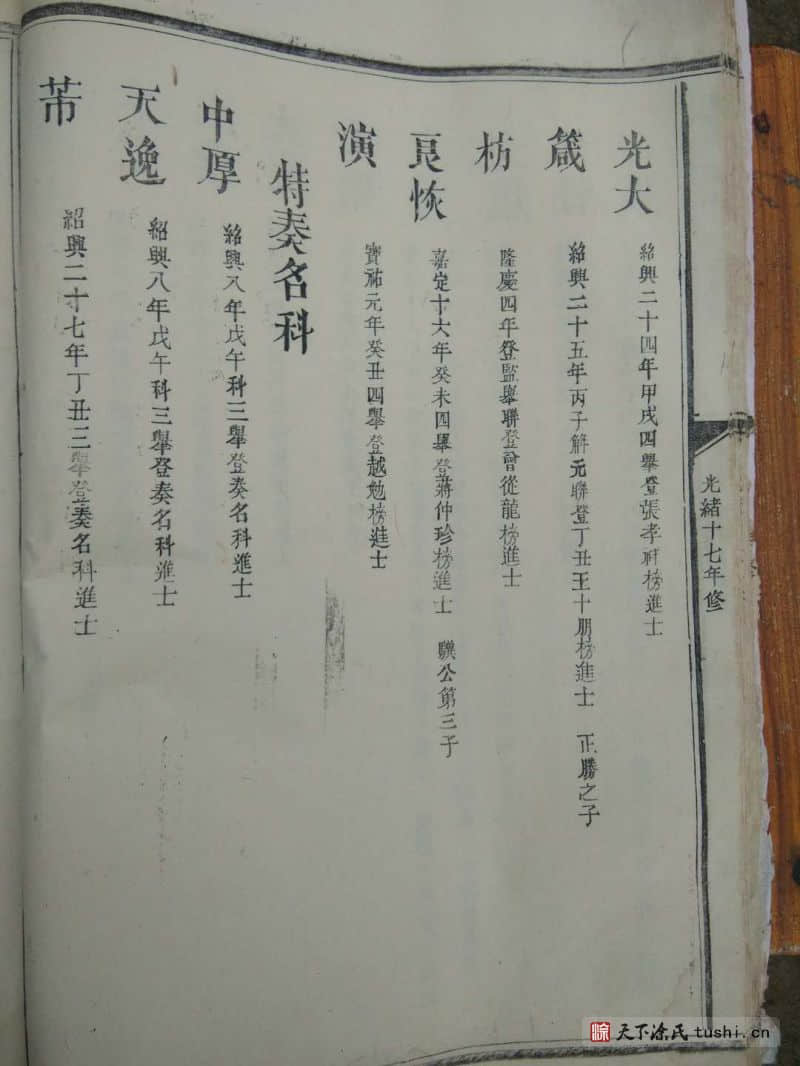 光緒十七年修
光大 紹興二十四年甲戌四舉登張孝祥榜進士
箴 紹興二十五年丙子解元聯登丁丑王十朋榜進士 正勝之子
枋 隆慶四年登監舉聯登曾從龍榜進士
良恢 嘉定十六年癸未四舉登蔣仲珍榜進士 驥公第三子
演 寶祐元年癸丑四舉登越勉榜進士
特奏名科
中厚 紹興八年戊午科三舉登奏名科進士
天逸 紹興八年戊午科三舉登奏名科進士
芾 紹興二十七年丁丑三舉登奏名科進士
天下涂氏 tushi.cn